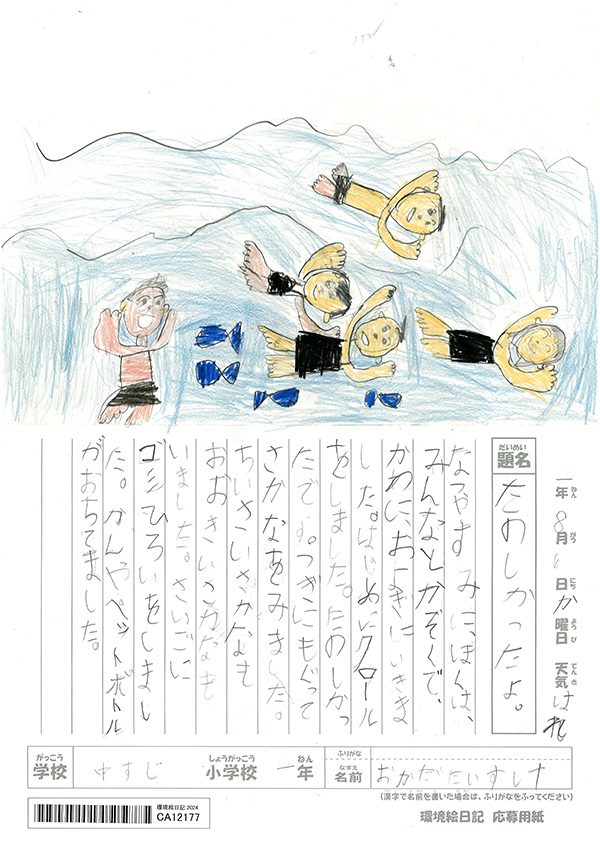 一年 8月 6日 か曜日 天気 はれ
ねん がつ にち ようび てんき
だいめい
題名
たのしかったよ。
なつやすみに、ぼくは、
みんなとかぞくで、
かわに、およぎにいきま
した。はじめにクロール
をしました。たのしかっ
たです。つぎにもぐって
さかなをみました。
ちいさいさかなも
おおきいさかなも
いました。さいごに
ゴミひろいをしまし
た。かんやペットボトル
がおちてました。
がっこう
学校
中すじ
しょうがっこう
小学校
一
ねん
年
ふりがな
なまえ
名前
おかだたいすけ
(漢字で名前を書いた場合は、ふりがなをふってください)
環境絵日記 2024
CA12177
環境絵日記 応募用紙